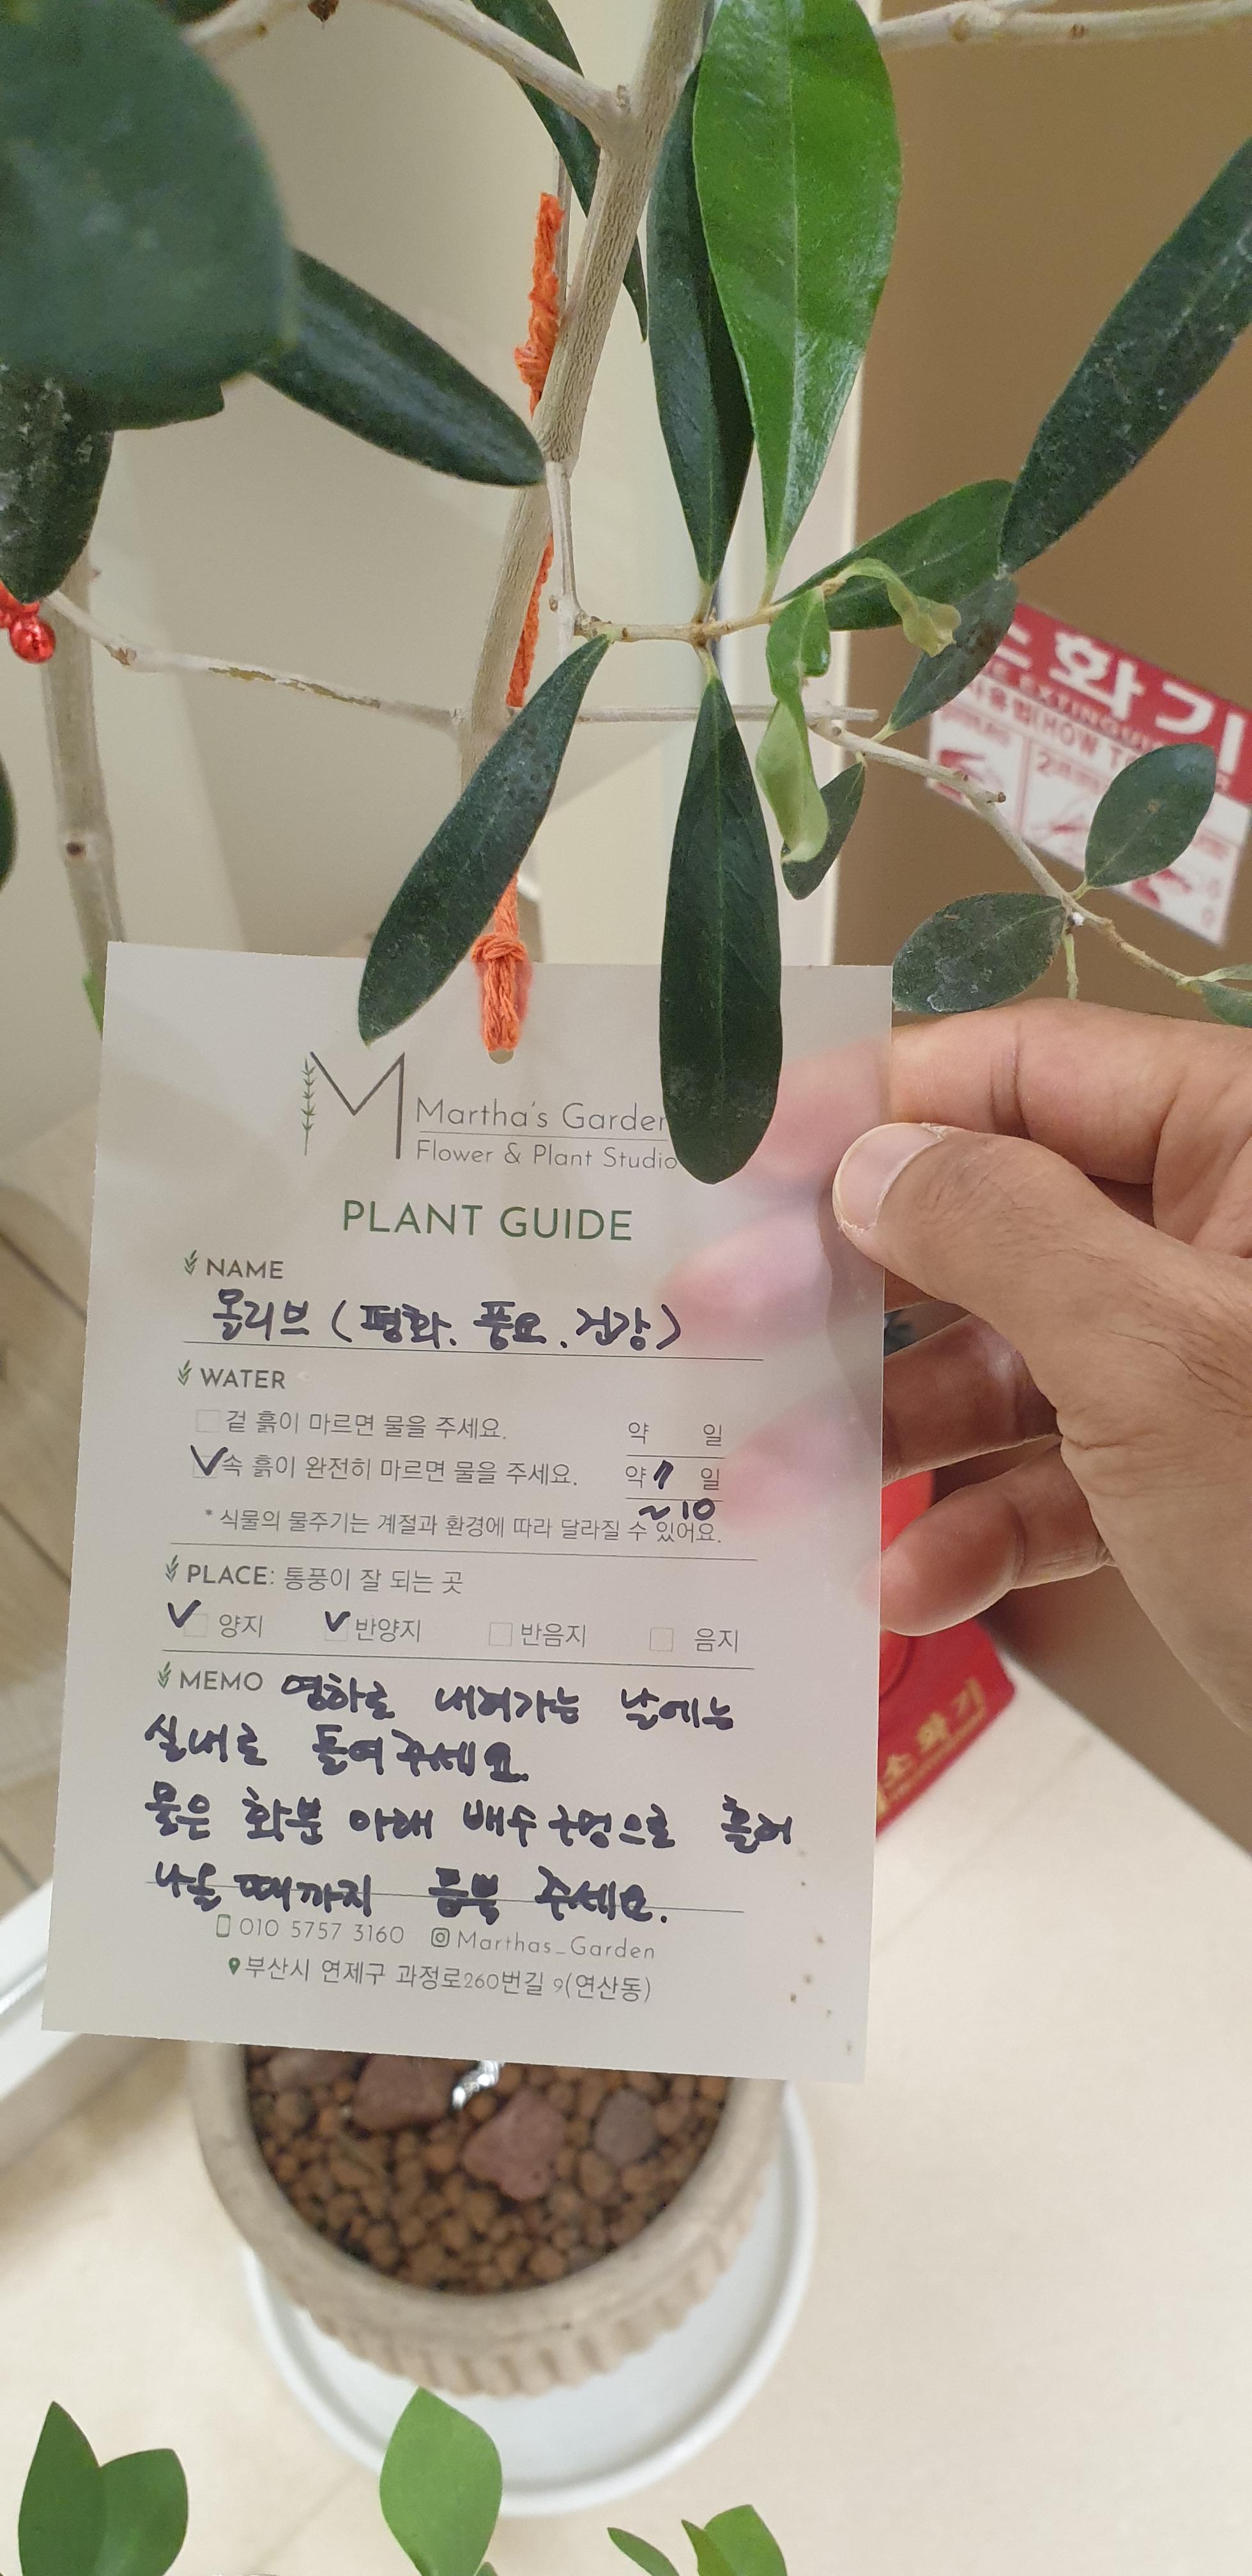 Martha's Garden
Flower & Plant Studio
PLANT GUIDE
NAME
올리브 (평화. 풍요. 건강)
WATER
겉 흙이 마르면 물을 주세요. 약 일
속 흙이 완전히 마르면 물을 주세요. 약 7 일
~10
* 식물의 물주기는 계절과 환경에 따라 달라질 수 있어요.
PLACE: 통풍이 잘 되는 곳
양지 반양지 반음지 음지
MEMO 영하로 내려가는 날에는
실내로 들여주세요.
물은 화분 아래 배수구멍으로 흘러
나올 때까지 듬뿍 주세요.
010 5757 3160 Marthas_Garden
부산시 연제구 과정로260번길 9(연산동)
화기
HOW
소화기